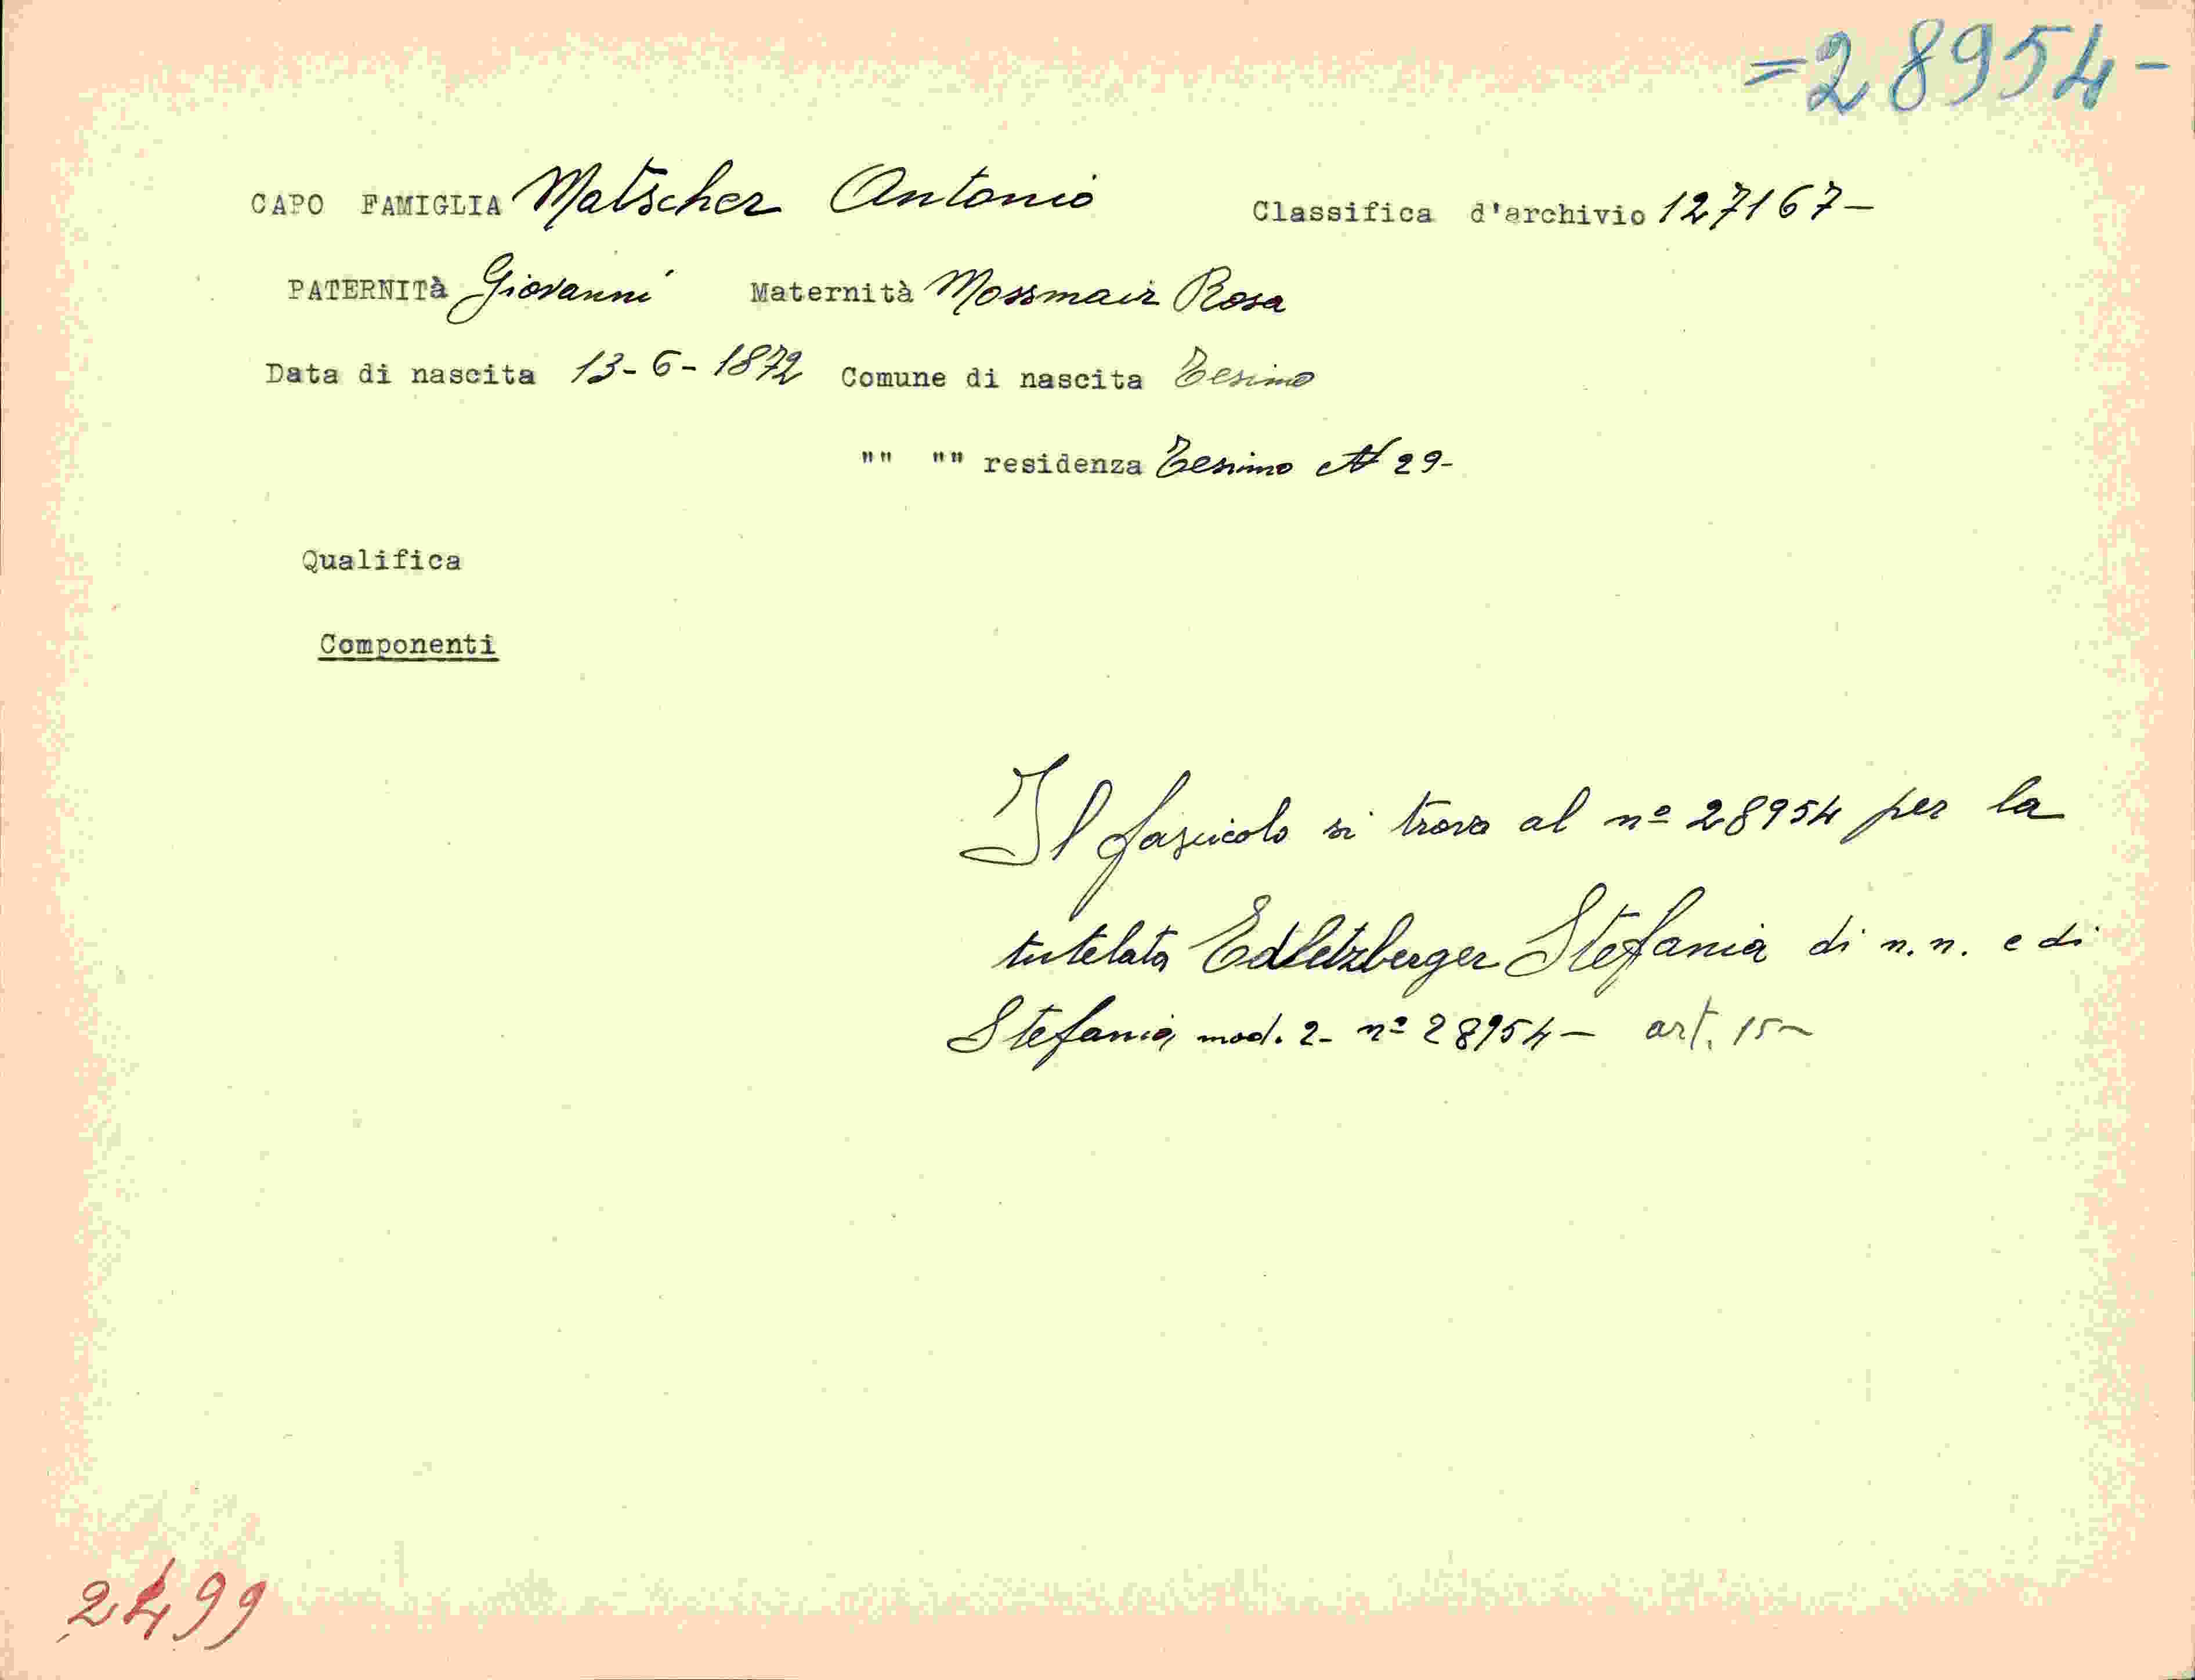 =28954-
CAPO FAMIGLIA Matscher Antonio Classifica d'archivio 127167-
PATERNITà Giovanni Maternità Mossmair Rosa
Data di nascita 13-6-1872 Comune di nascita Tesimo
"" "" residenza Tesimo N 29-
Qualifica
Componenti
Il fascicolo si trova al nº 28954 per la
tutelata Edletzberger Stefania di n.n. e di
Stefania mod. 2- nº 28954- art. 15-
2499